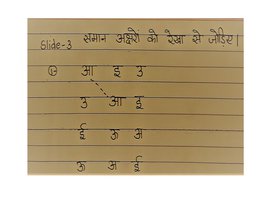 Slide-3 समान अक्षरों को रेखा से जोडिए।
आ इ उ
उ आ इ
ई ऊ अ
ऊ अ ई